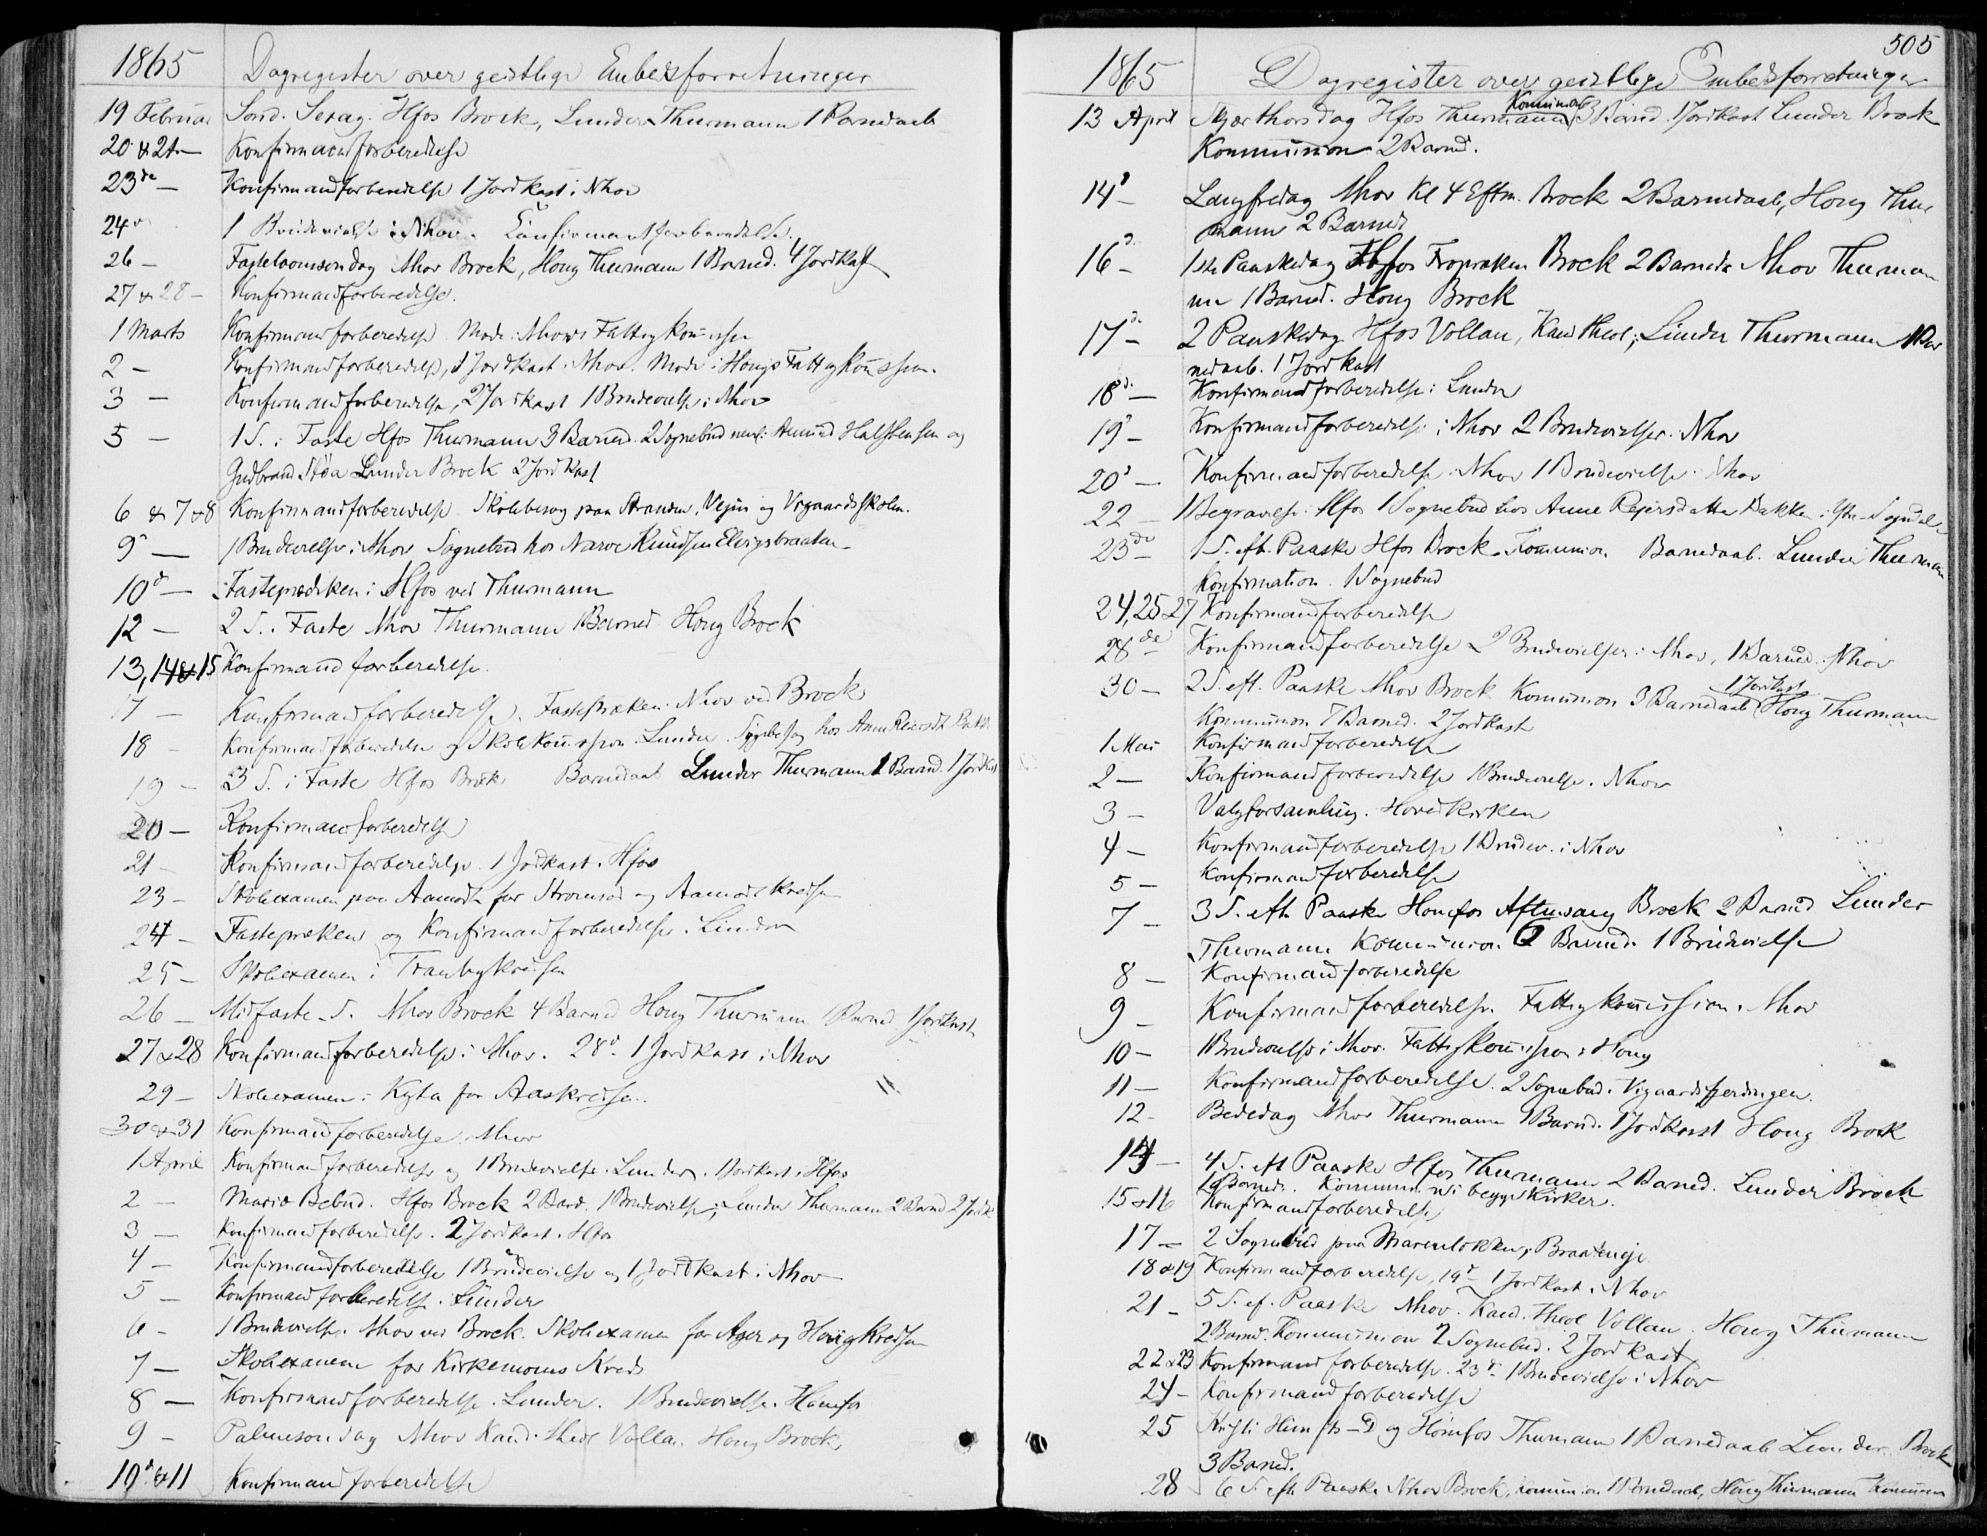 1865 Dagregister over geistlige Embedsforretninger
19 Februar Sønd. Sexag. Hfos Brock, Lunder Thurmann 1 Barnedaab
20 & 21 — Konfirmandforberedelse
23de — Konfirmandforberedelse 1 Jordkast i Nhov
24 1 Brudevielse i Nhov. Konfirmandforberedelse.
26 — Fastelavnssøndag Nhov Brock, Houg Thurmann 1 Barned. 4 Jordkast
27 & 28 — Konfirmandforberedelse.
1 Marts Konfirmandforberedelse Møde i Nhovs Fattigkommission
2 — Konfirmandforberedelse, 1 Jordkast i Nhov. Møde i Hougs Fattigkommission.
3 — Konfirmandforberedelse, 2 Jordkast 1 Brudevielse i Nhov
5 — 1 S. i Faste Hfos Thurmann 3 Barned. 2 Sognebud neml: Amund Halstensen og
Gudbrand Lunder Brock 2 Jordkast
6 & 7 & 8 Konfirmandforberedelse. Skolebesøg paa Stranden, Vegaardsskolen.
9 — 1 Brudevielse i Nhov Sognebud hos Narve Knudsen
10d — Fasteprædiken i Hfos ved Thurmann
12 — 2 S. i Faste Nhov Thurmann 1 Barned Houg Brock
13, 14 & 15 Konfirmandforberedelse.
17 — Konfirmandforberedelse. Fastepræken i Nhov ved Brock
18 — Konfirmandforberedelse og Skolekommission i Lunder. Sygebesøg hos Anne
19 — 3 S. i Faste Hfos Brock Barnedaab Lunder Thurmann 1 Barned. 1 Jordkast
20 — Konfirmandforberedelse
21 — Konfirmandforberedelse. 1 Jordkast i Hfos
23 — Skoleexamen paa Aamodt for Strømsod og Aamodtkredsen
24 — Fastepræken og Konfirmandforberedelse i Lunder
25 — Skoleexamen i Tranbykredsen
26 — Midfaste-S. Nhov Brock 4 Barned Houg Thurmann Barned 1 Jordkast
27 & 28 Konfirmandforberedelse i Nhov. 28d. 1 Jordkast i Nhov
29 — Skoleexamen i Kyta for Aaskredsen.
30 & 31 Konfirmandforberedelse i Nhov
1 April Konfirmandforberedelse og 1 Brudevielse i Lunder. 1 Jordkast i Hfos
2 — Mariæ Bebud. Hfos Brock 2 Barned. 1 Brudevielse; Lunder Thurmann 2 Barned 2 Jordk
3 — Konfirmandforberedelse. 2 Jordkast i Hfos
4 — Konfirmandforberedelse 1 Brudevielse og 1 Jordkast i Nhov
5 — Konfirmandforberedelse i Lunder
6 — 1 Brudevielse i Nhov ved Brock. Skoleexamen for Ager og Hougkredsen
7 — Skoleexamen for Kirkemoens Kreds
8 — Konfirmandforberedelse i Lunder. 1 Brudevielse i Hønefos
9 — Palmesøndag Nhov Kand. theol Vollan. Houg Brock,
10d & 11 Konfirmandforberedelse
505
1865 Dagregister over geistlige Embedsforretninger
Kommunion
13 April Skjærthorsdag Hfos Thurmann 3 Barned. 1 Jordkast Lunder Brock
Kommunion 2 Barned.
14d — Langfredag Nhov Kl 4 Eftm. Brock 2 Barnedaab, Houg Thur
mann 2 Barned
16d. — 1ste Paaskedag Hfos Froprækn Brock 2 Barneda Nhov Thurma
nn 1 Barned. Houg Brock
17d. — 2 Paaskedag Hfos Vollan, Kand theol; Lunder Thurmann 1 Bar
nedaab. 1 Jordkast
18d. — Konfirmandforberedelse i Lunder
19d — Konfirmandforberedelse i Nhov 2 Brudevielser i Nhov
20d — Konfirmandforberedelse i Nhov 1 Brudevielse i Nhov
22 — 1 Begravelse i Hfos 1 Sognebud hos Anne Bakken i Ytre Sogndal
23de — 1 S. eft. Paaske Hfos Brock. Kommunion. Barnedaab. Lunder Thurmann
Konfirmation. 1 Sognebud
24, 25 & 27 Konfirmandforberedelse
28de — Konfirmandforberedelse 2 Brudevielser i Nhov, 1 Barned. i Nhov
1 Jordkast
30 — 2 S. eft. Paaske Nhov Brock Kommunion 3 Barnedaab Houg Thurmann
Kommunion 7 Barned. 2 Jordkast
1 Mai Konfirmandforberedelse
2 — Konfirmandforberedelse 1 Brudevielse i Nhov
3 — Valgforsamling i Hovedkirken
4 — Konfirmandforberedelse 1 Brudev. i Nhov
5 — Konfirmandforberedelse
7 — 3 S. eft. Paaske Hønefos Aftensang Brock 2 Barned Lunder
Thurmann Kommunion. 6 Barned. 1 Brudevielse
8 — Konfirmandforberedelse
9 — Konfirmandforberedelse. Fattigkommission i Nhov
10 — 1 Brudevielse i Nhov. Fattigkommission i Houg
11 — Konfirmandforberedelse. 2 Sognebud i Vegaardsfjerdingen.
12 — Bededag Nhov Thurmann 1 Barned. 1 Jordkast Houg Brock
14 — 4 S. eft Paaske Hfos Thurmann 2 Barned. Lunder Brock
Barned. Kommunion i begge Kirker.
15 & 16 Konfirmandforberedelse
17 — 2 Sognebud paa Marenløkken, Braateneje
18 & 19 Konfirmandforberedelse, 19d. 1 Jordkast i Nhov
21 — 5 S. ef. Paaske Nhov. Kand. theol Vollan. Houg Thurmann
2 Barned. Kommunion 2 Sognebud. 2 Jordkast
22 & 23 Konfirmandforberedelse. 23d. 1 Brudevielse i Nhov
24 — Konfirmandforberedelse
25 Kristi Himfts-D og Hønefos Thurmann 1 Barnedaab Lunder Brock
3 Barned.
28 6 S. eft Paaske Nhov Brock, Kommunion 1 Barnedaab, Houg Thurmann Kommunion